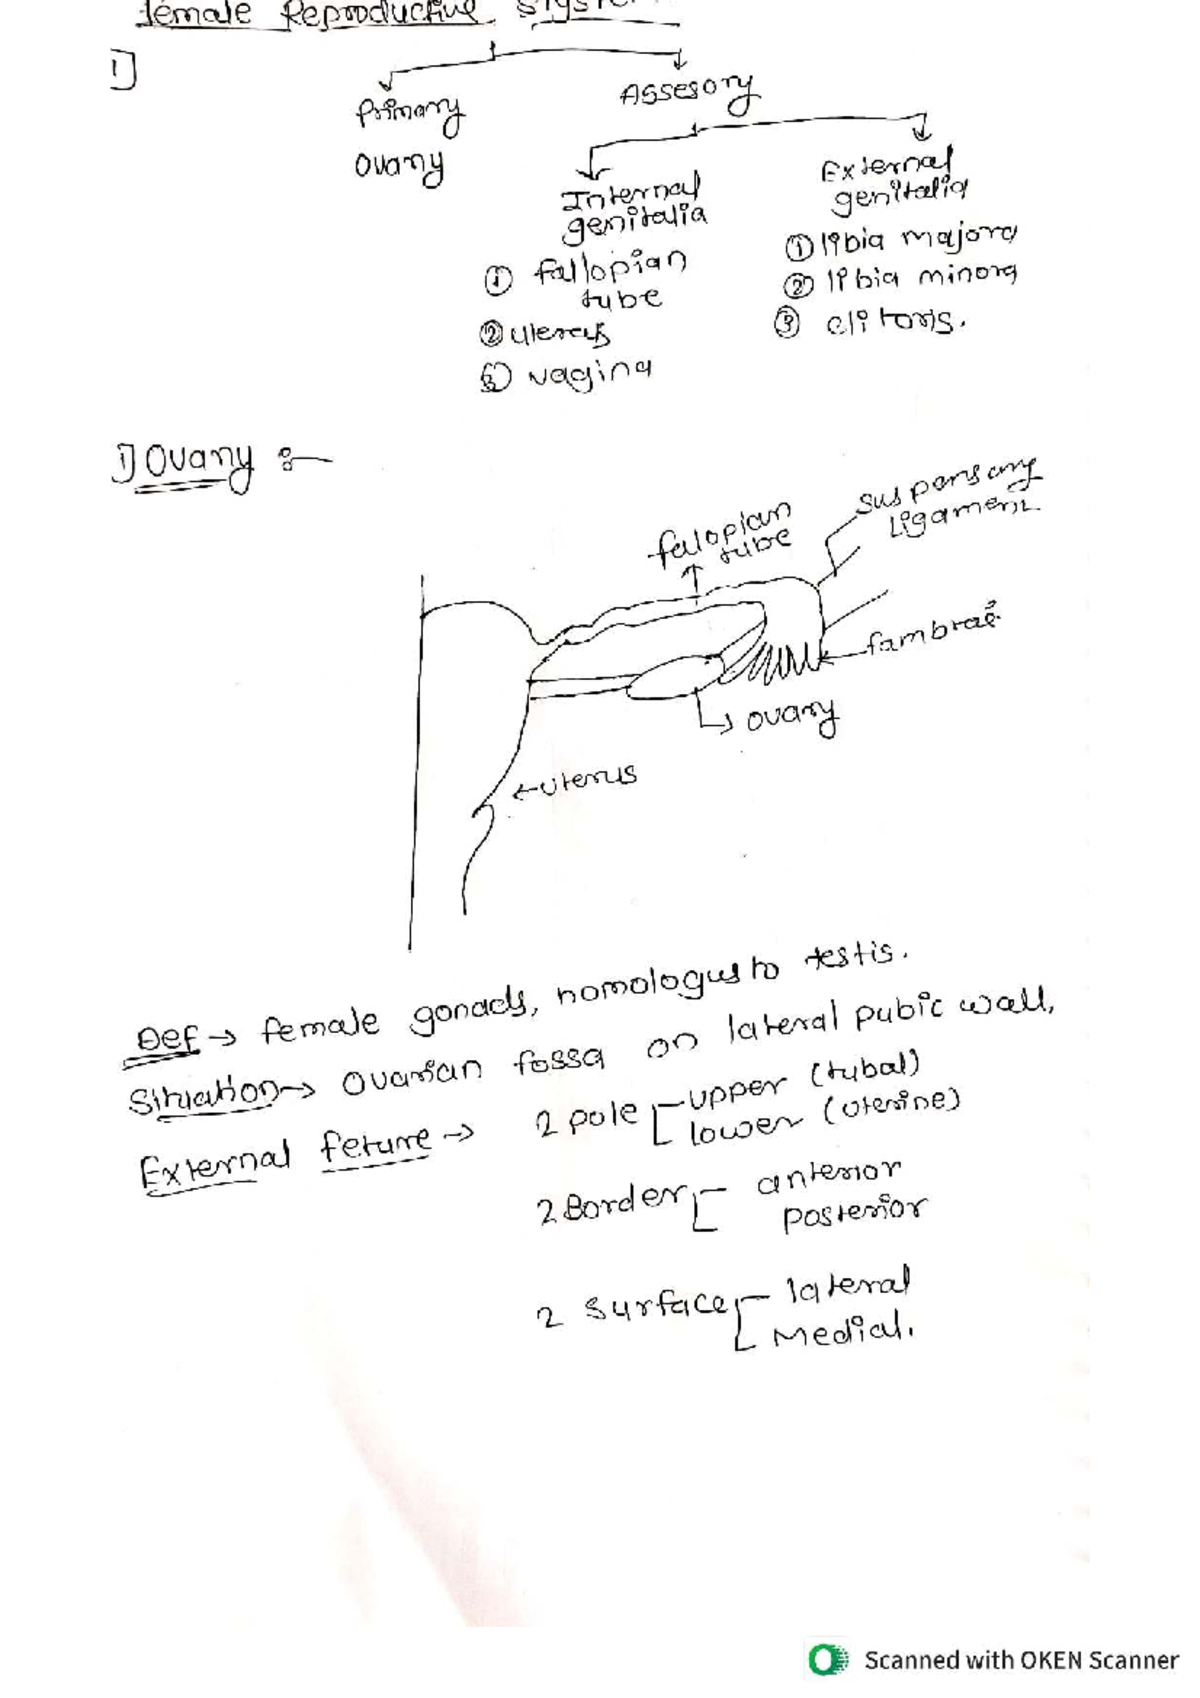 Female Reproductive System
1]
Primary
Ovary
Assesory
Internal
genitalia
① fallopian
tube
② uterus
③ vagina
External
genitalia
① libia majora
② libia minora
③ clitoris.
1] Ovary :-
faloplan
tube
suspensary
ligament
fambraé
ovary
uterus
Def → female gonads, homologus to testis.
Situation → Ovarian fossa on lateral pubic wall,
External feture → 2 pole upper (tubal)
lower (uterine)
2 Border anterior
posterior
2 surface lateral
Medial.
Scanned with OKEN Scanner